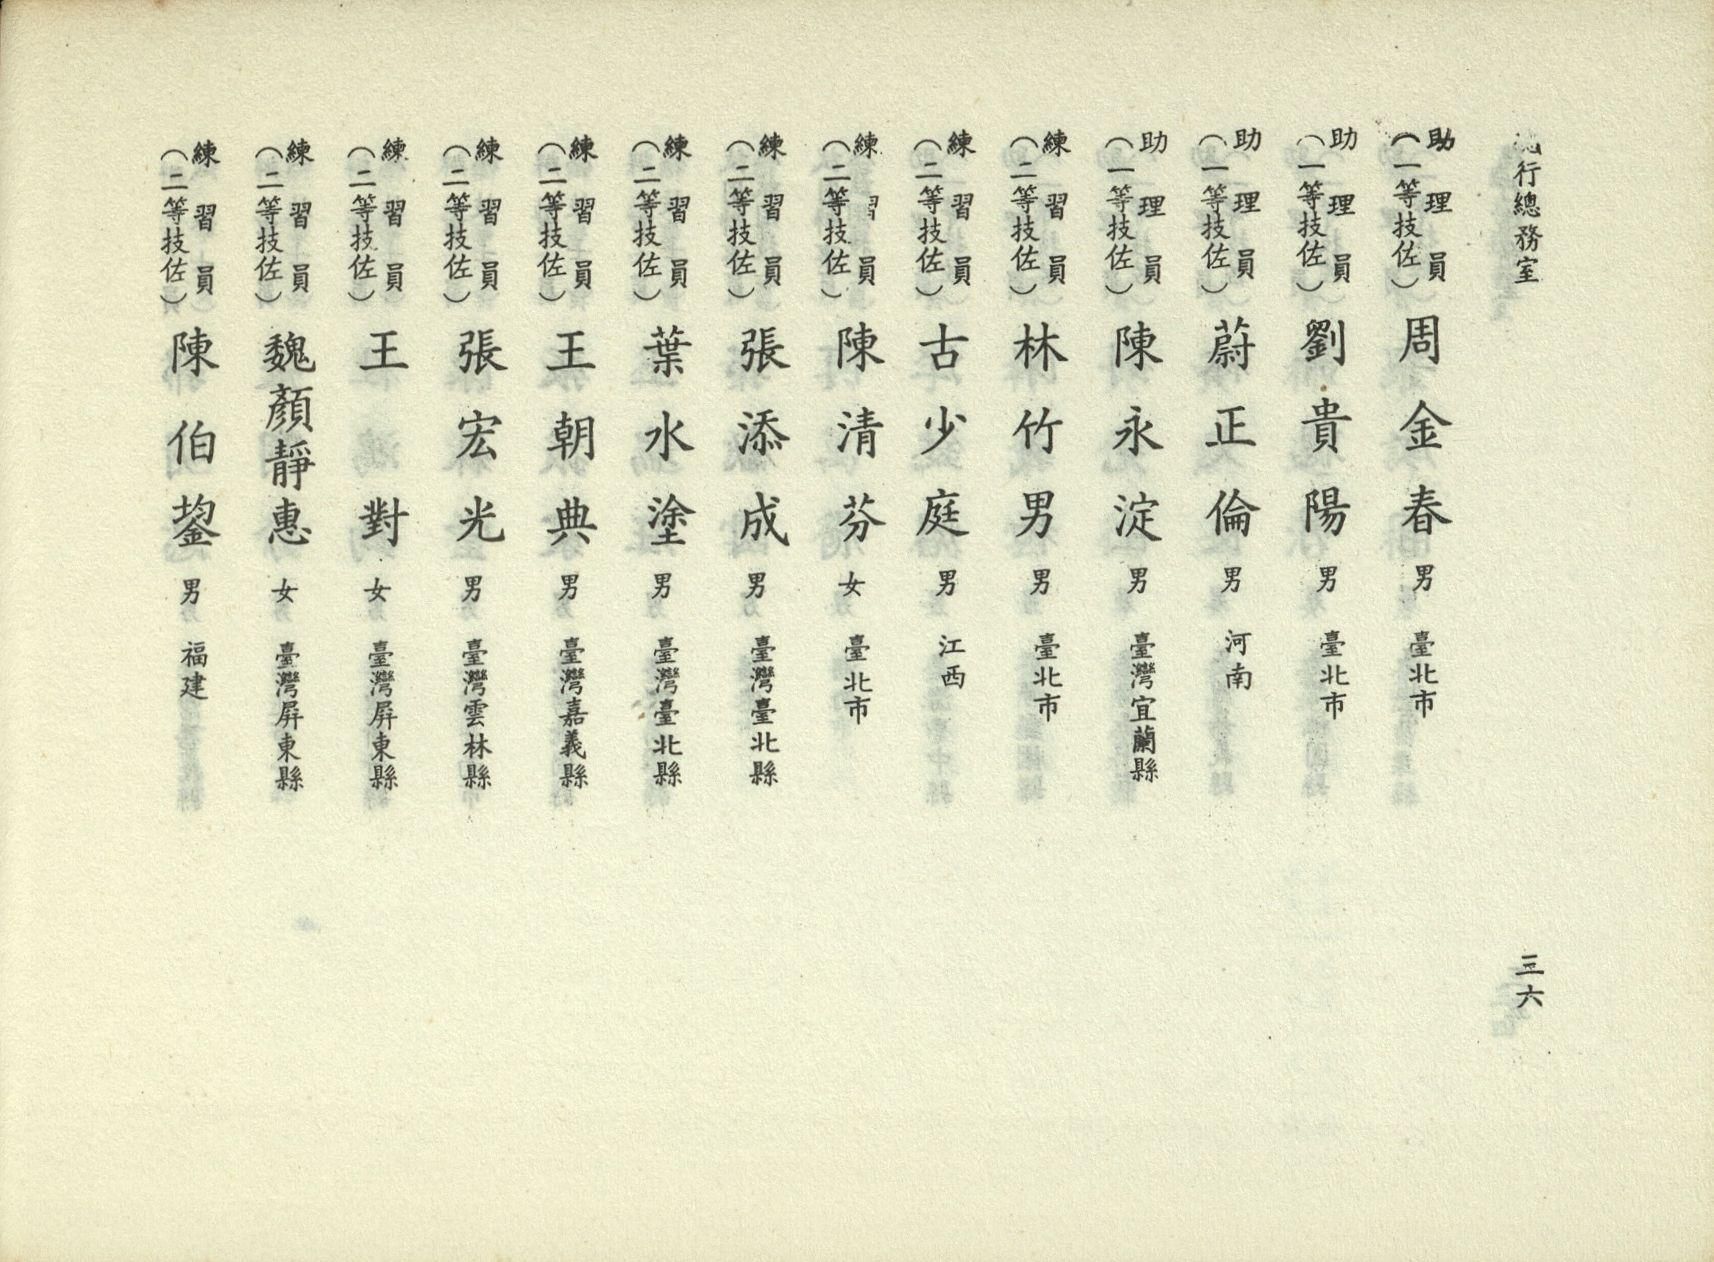 行總務室
三六
助理員(一等技佐) 周金春 男 臺北市
助理員(一等技佐) 劉貴陽 男 臺北市
助理員(一等技佐) 蔚正倫 男 河南
助理員(一等技佐) 陳永淀 男 臺灣宜蘭縣
練習員(二等技佐) 林竹男 男 臺北市
練習員(二等技佐) 古少庭 男 江西
練習員(二等技佐) 陳清芬 女 臺北市
練習員(二等技佐) 張添成 男 臺灣臺北縣
練習員(二等技佐) 葉水塗 男 臺灣臺北縣
練習員(二等技佐) 王朝典 男 臺灣嘉義縣
練習員(二等技佐) 張宏光 男 臺灣雲林縣
練習員(二等技佐) 王對 女 臺灣屏東縣
練習員(二等技佐) 魏顏靜惠 女 臺灣屏東縣
練習員(二等技佐) 陳伯鋆 男 福建